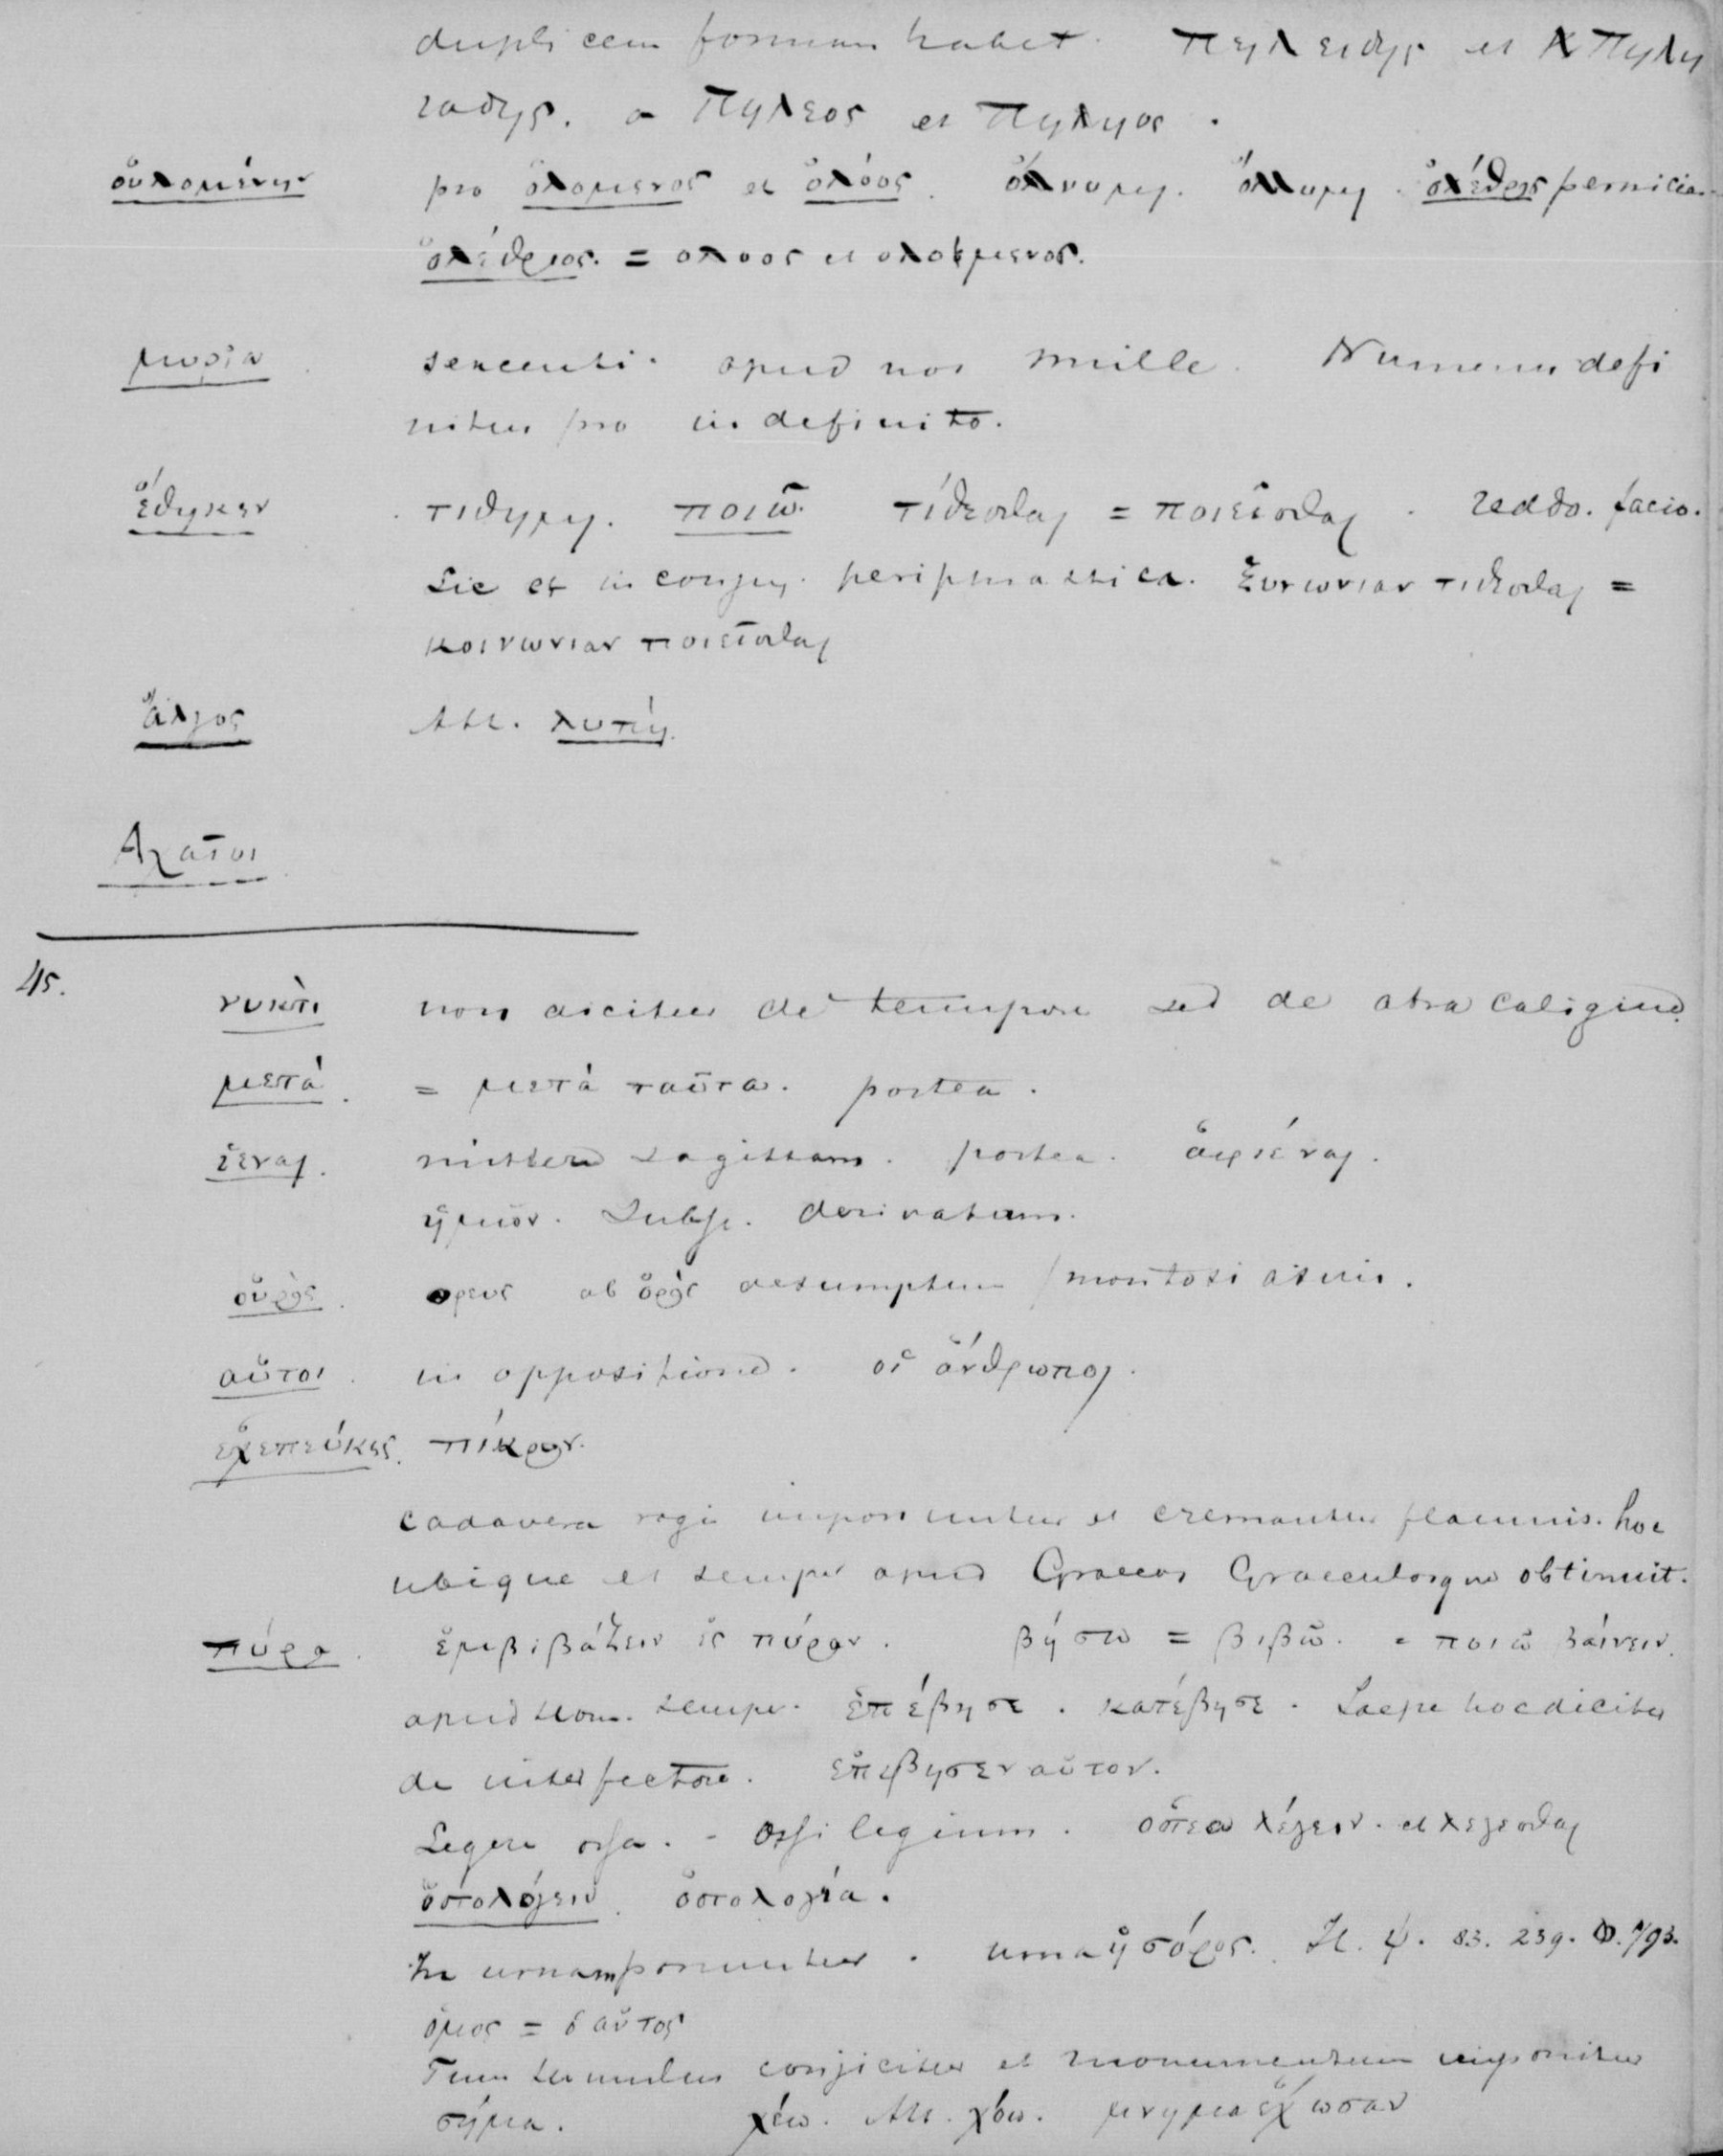 duplicem formam habet. Πηλειδης et Πηλη
ιαδης. a Πηλεος et Πηληος.
οὐλομένην pro ὀλομενος et ὀλόος. ὄλνυμι. ὄλλυμι. ὀλέθρος pernicies
ὀλέθριος. = ολοος et ολομενος.
μυρία sexcenti. apud nos mille. Numerus defi
nitus pro indefinito.
ἔθηκεν τιθημι. ποιῶ. τίθεσθαι = ποιεῖσθαι. reddo. facio.
Sic et in conjug. periphrastica. ξυνωνιαν τιθεσθαι =
κοινωνιαν ποιεῖσθαι
ἄλγος Att. λυπή.
Αχαῖοι
45.
νυκτὶ non dicitur de tempore sed de atra caligine.
μετὰ. = μετὰ ταῦτα. postea.
ἵεναι. mittere sagittam. postea. ἀφιέναι.
ἡμῶν. Subst. derivatum.
οὐρὸς. ορευς ab ὀρὸς desumptum montosi asini.
αὐτοι. in oppositione. οἱ ἄνθρωποι.
εχεπεύκες. πίκρον.
cadavera rogi imponuntur et cremantur flammis. hoc
ubique et semper apud Graecos Graeculosque obtinuit.
πύρα. ἐμβιβάζειν ἐς πύραν. βήσω = βιβῶ. = ποιῶ βάινειν.
apud Hom. semper. ἐπέβησε. κατέβησε. Saepe hoc dicitur
de interfectore. ἐπεβησεν αὐτον.
Legere ossa. - Ossilegium. οστεα λέγειν. et λεγεσθαι
ὀστολόγειν. ὀστολογία.
In urnam ponuntur. urna ἡ σόρος. Il. ψ. 83. 239. Φ. 793.
ὁμος = ὁ αὐτος
Tum tumulus conjicitur et monumentum imponitur
σήμα. χέω. Att. χόω. μνημα ἐχωσαν